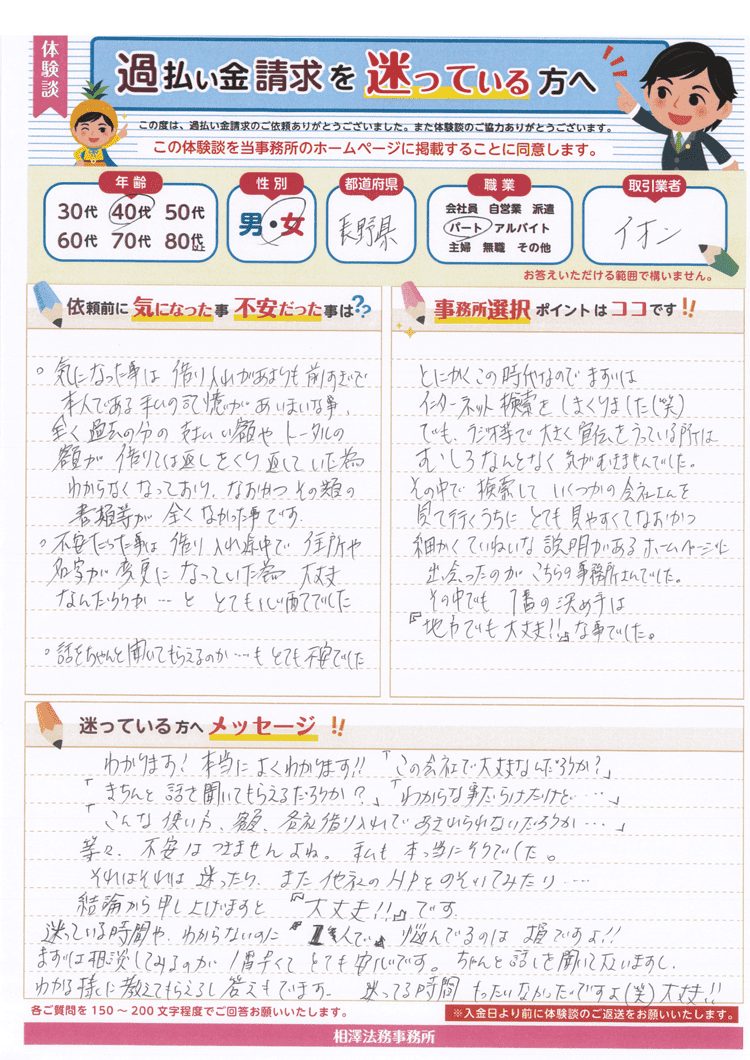 体験談
過払い金請求を 迷っている 方へ
この度は、過払い金請求のご依頼ありがとうございました。また体験談のご協力ありがとうございます。
この体験談を当事務所のホームページに掲載することに同意します。
年齢
30代 40代 50代
60代 70代 80代以上
性別
男・女
都道府県
長野県
職業
会社員 自営業 派遣
パート アルバイト
主婦 無職 その他
取引業者
イオン
お答えいただける範囲で構いません。
依頼前に 気になった事 不安だった事は??
。気になった事は 借り入れがあまりも前すぎて
本人である私の記憶があいまいな事、
全く過去の分の支払い額や トータルの
額が 借りては返しをくり返していた為
わからなくなっており、なおかつ その類の
書類等が 全くなかった事です。
。不安だった事は 借り入れ途中で 住所や
名字が変更に なっていた為 大丈夫
なんだろうか…と とても心配でした
。話をちゃんと聞いてもらえるのか…も とても不安でした
事務所選択 ポイントは ココです!!
とにかくこの時代なので まずは
インターネット検索を しまくりました(笑)
でも、ラジオ等で大きく宣伝をうっている所は
むしろなんとなく 気がむきませんでした。
その中で 検索して いくつかの会社さんを
見て行くうちに とても見やすくてなおかつ
細かくていねいな 説明がある ホームページに
出会ったのが こちらの事務所さんでした。
その中でも 1番の決め手は
『地方でも大丈夫!!』な事でした。
迷っている方へ メッセージ !!
わかります! 本当に よくわかります!! 「この会社で大丈夫なんだろうか?」
「きちんと 話を聞いてもらえるだろうか?」 「わからな事だらけだけど…」
「こんな 使い方、額、各社借り入れで あきれられないだろうか…」
等々、不安はつきませんよね。 私も 本当にそうでした。
それはそれは 迷ったり、また他社のHPをのぞいてみたり…
結論から申し上げますと 『大丈夫!!』です。
迷っている時間や、わからないのに 『1人で』 悩んでるのは 損ですよ!!
まずは相談してみるのが 1番早くて とても安心です。 ちゃんと話しを聞いて下さいますし、
わかる様に教えてもらえるし 答えもでます。 迷ってる時間 もったいなかったですよ(笑) 大丈夫!!
各ご質問を150〜200文字程度でご回答お願いいたします。
※入金日より前に体験談のご返送をお願いいたします。
相澤法務事務所